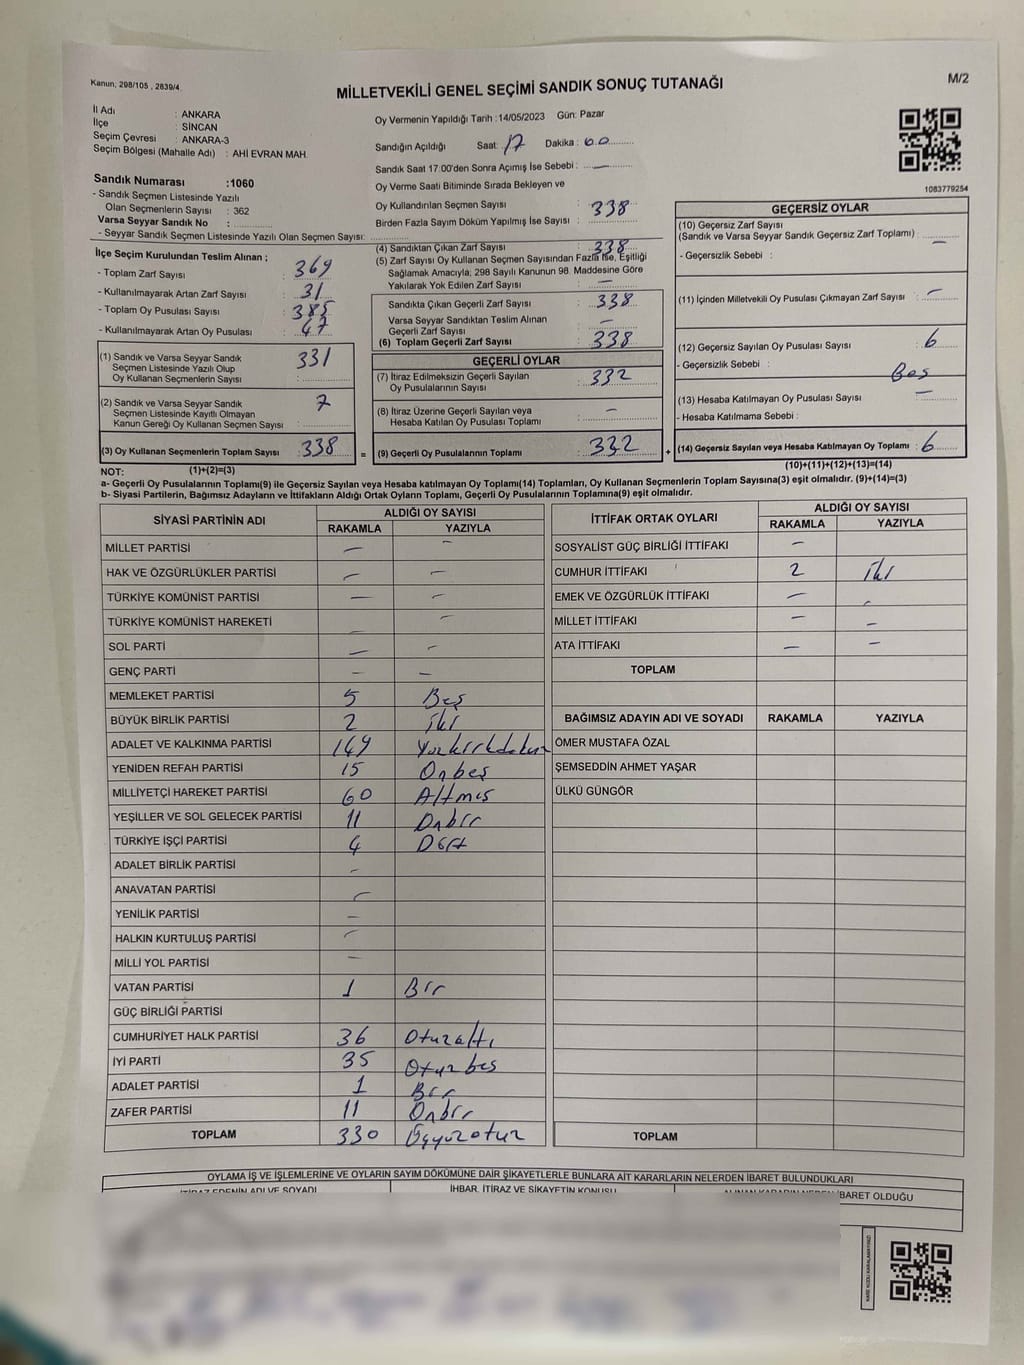 Kanun; 298/105 , 2839/4
MİLLETVEKİLİ GENEL SEÇİMİ SANDIK SONUÇ TUTANAĞI
M/2
İl Adı : ANKARA
İlçe : SİNCAN
Seçim Çevresi : ANKARA-3
Seçim Bölgesi (Mahalle Adı) : AHİ EVRAN MAH.
Sandık Numarası :1060
- Sandık Seçmen Listesinde Yazılı
Olan Seçmenlerin Sayısı : 362
Varsa Seyyar Sandık No :
- Seyyar Sandık Seçmen Listesinde Yazılı Olan Seçmen Sayısı:
Oy Vermenin Yapıldığı Tarih :14/05/2023 Gün: Pazar
Sandığın Açıldığı Saat: 17 Dakika: 00
Sandık Saat 17:00'den Sonra Açımış İse Sebebi : —
Oy Verme Saati Bitiminde Sırada Bekleyen ve
Oy Kullandırılan Seçmen Sayısı : 338
Birden Fazla Sayım Döküm Yapılmış İse Sayısı :
1083779254
İlçe Seçim Kurulundan Teslim Alınan ;
- Toplam Zarf Sayısı : 369
- Kullanılmayarak Artan Zarf Sayısı : 31
- Toplam Oy Pusulası Sayısı : 385
- Kullanılmayarak Artan Oy Pusulası : 47
(1) Sandık ve Varsa Seyyar Sandık
Seçmen Listesinde Yazılı Olup
Oy Kullanan Seçmenlerin Sayısı : 331
(2) Sandık ve Varsa Seyyar Sandık
Seçmen Listesinde Kayıtlı Olmayan
Kanun Gereği Oy Kullanan Seçmen Sayısı : 7
(3) Oy Kullanan Seçmenlerin Toplam Sayısı : 338
(4) Sandıktan Çıkan Zarf Sayısı : 338
(5) Zarf Sayısı Oy Kullanan Seçmen Sayısından Fazla İse, Eşitliği
Sağlamak Amacıyla; 298 Sayılı Kanunun 98. Maddesine Göre
Yakılarak Yok Edilen Zarf Sayısı : —
Sandıkta Çıkan Geçerli Zarf Sayısı : 338
Varsa Seyyar Sandıktan Teslim Alınan
Geçerli Zarf Sayısı : —
(6) Toplam Geçerli Zarf Sayısı : 338
GEÇERLİ OYLAR
(7) İtiraz Edilmeksizin Geçerli Sayılan
Oy Pusulalarının Sayısı : 332
(8) İtiraz Üzerine Geçerli Sayılan veya
Hesaba Katılan Oy Pusulası Toplamı : —
= (9) Geçerli Oy Pusulalarının Toplamı : 332
GEÇERSİZ OYLAR
(10) Geçersiz Zarf Sayısı
(Sandık ve Varsa Seyyar Sandık Geçersiz Zarf Toplamı) : —
- Geçersizlik Sebebi :
(11) İçinden Milletvekili Oy Pusulası Çıkmayan Zarf Sayısı : —
(12) Geçersiz Sayılan Oy Pusulası Sayısı : 6
- Geçersizlik Sebebi : Boş
(13) Hesaba Katılmayan Oy Pusulası Sayısı : —
- Hesaba Katılmama Sebebi :
+ (14) Geçersiz Sayılan veya Hesaba Katılmayan Oy Toplamı : 6
NOT: (1)+(2)=(3) (10)+(11)+(12)+(13)=(14)
a- Geçerli Oy Pusulalarının Toplamı(9) ile Geçersiz Sayılan veya Hesaba katılmayan Oy Toplamı(14) Toplamları, Oy Kullanan Seçmenlerin Toplam Sayısına(3) eşit olmalıdır. (9)+(14)=(3)
b- Siyasi Partilerin, Bağımsız Adayların ve İttifakların Aldığı Ortak Oyların Toplamı, Geçerli Oy Pusulalarının Toplamına(9) eşit olmalıdır.
SİYASİ PARTİNİN ADI ALDIĞI OY SAYISI
RAKAMLA YAZIYLA
MİLLET PARTİSİ — —
HAK VE ÖZGÜRLÜKLER PARTİSİ — —
TÜRKİYE KOMÜNİST PARTİSİ — —
TÜRKİYE KOMÜNİST HAREKETİ — —
SOL PARTİ — —
GENÇ PARTİ — —
MEMLEKET PARTİSİ 5 Beş
BÜYÜK BİRLİK PARTİSİ 2 İki
ADALET VE KALKINMA PARTİSİ 149 Yüzkırkdokuz
YENİDEN REFAH PARTİSİ 15 Onbeş
MİLLİYETÇİ HAREKET PARTİSİ 60 Altmış
YEŞİLLER VE SOL GELECEK PARTİSİ 11 Onbir
TÜRKİYE İŞÇİ PARTİSİ 4 Dört
ADALET BİRLİK PARTİSİ —
ANAVATAN PARTİSİ —
YENİLİK PARTİSİ —
HALKIN KURTULUŞ PARTİSİ —
MİLLİ YOL PARTİSİ —
VATAN PARTİSİ 1 Bir
GÜÇ BİRLİĞİ PARTİSİ
CUMHURİYET HALK PARTİSİ 36 Otuzaltı
İYİ PARTİ 35 Otuzbeş
ADALET PARTİSİ 1 Bir
ZAFER PARTİSİ 11 Onbir
TOPLAM 330 Üçyüzotuz
İTTİFAK ORTAK OYLARI ALDIĞI OY SAYISI
RAKAMLA YAZIYLA
SOSYALİST GÜÇ BİRLİĞİ İTTİFAKI —
CUMHUR İTTİFAKI 2 iki
EMEK VE ÖZGÜRLÜK İTTİFAKI — —
MİLLET İTTİFAKI — —
ATA İTTİFAKI — —
TOPLAM
BAĞIMSIZ ADAYIN ADI VE SOYADI RAKAMLA YAZIYLA
ÖMER MUSTAFA ÖZAL
ŞEMSEDDİN AHMET YAŞAR
ÜLKÜ GÜNGÖR
TOPLAM
OYLAMA İŞ VE İŞLEMLERİNE VE OYLARIN SAYIM DÖKÜMÜNE DAİR ŞİKAYETLERLE BUNLARA AİT KARARLARIN NELERDEN İBARET BULUNDUKLARI
İTİRAZ EDENİN ADI VE SOYADI İHBAR, İTİRAZ VE ŞİKAYETİN KONUSU ALINAN KARARIN NEDEN İBARET OLDUĞU